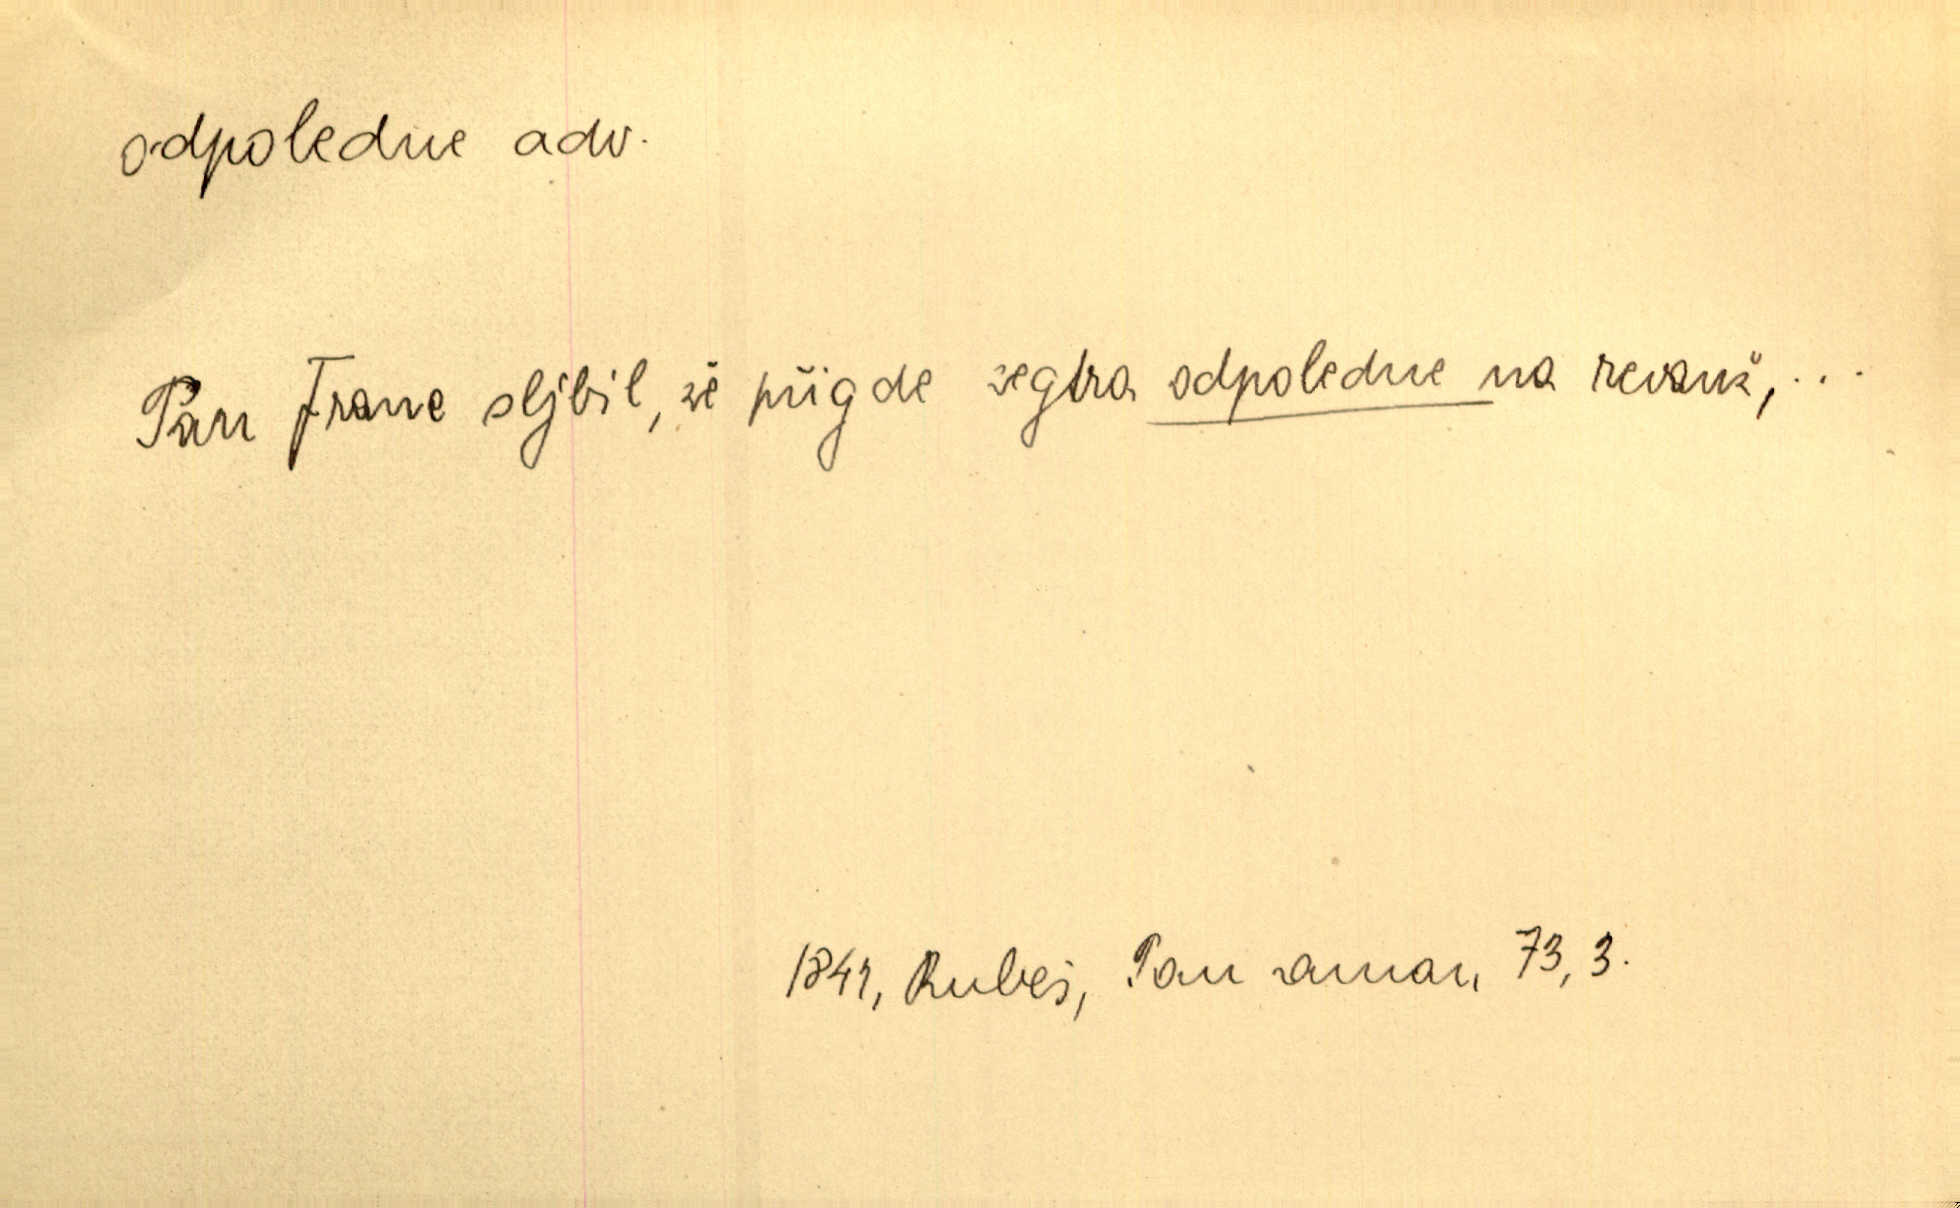 odpoledne adv.
Pan Franc sljbil, že přigde zegtra odpoledne na revanž, ...
1841, Rubeš, Pan aman, 73, 3.